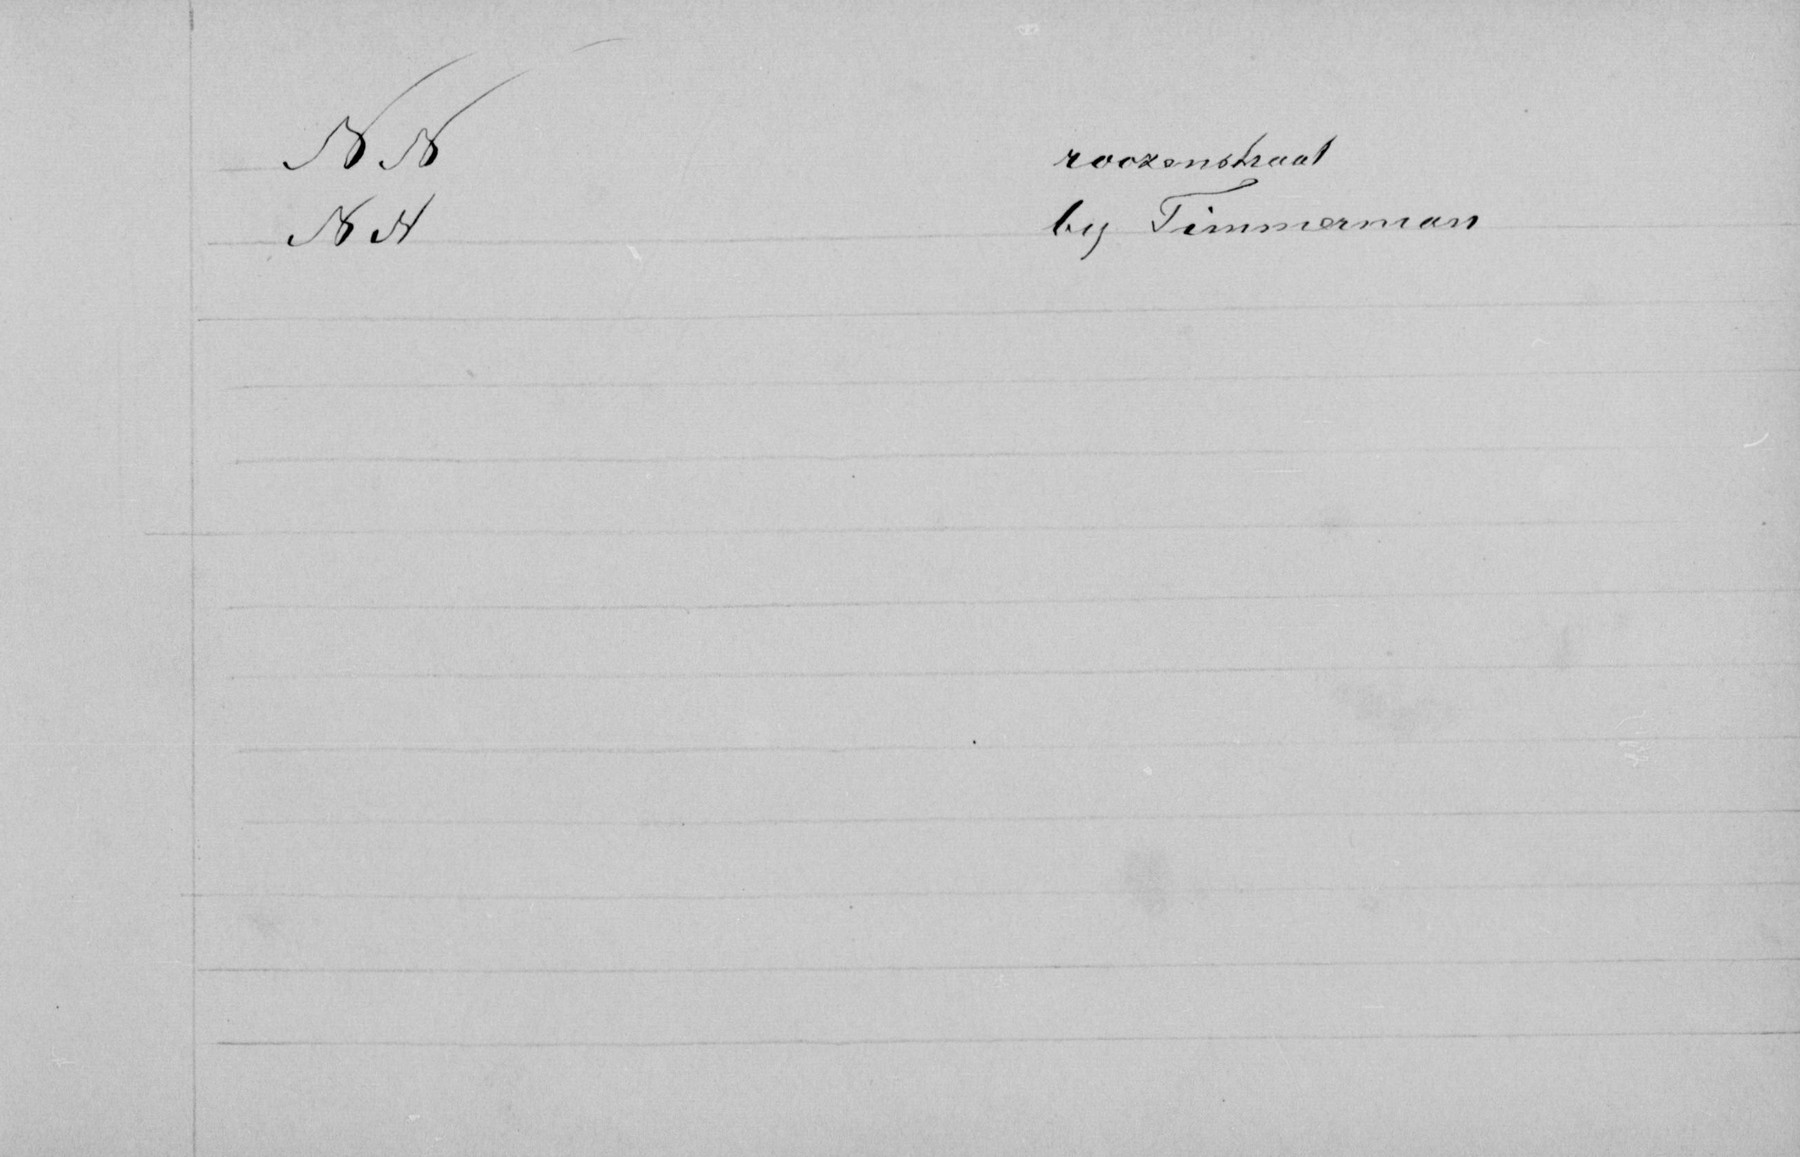 N N roozenstraat
N N by Timmerman